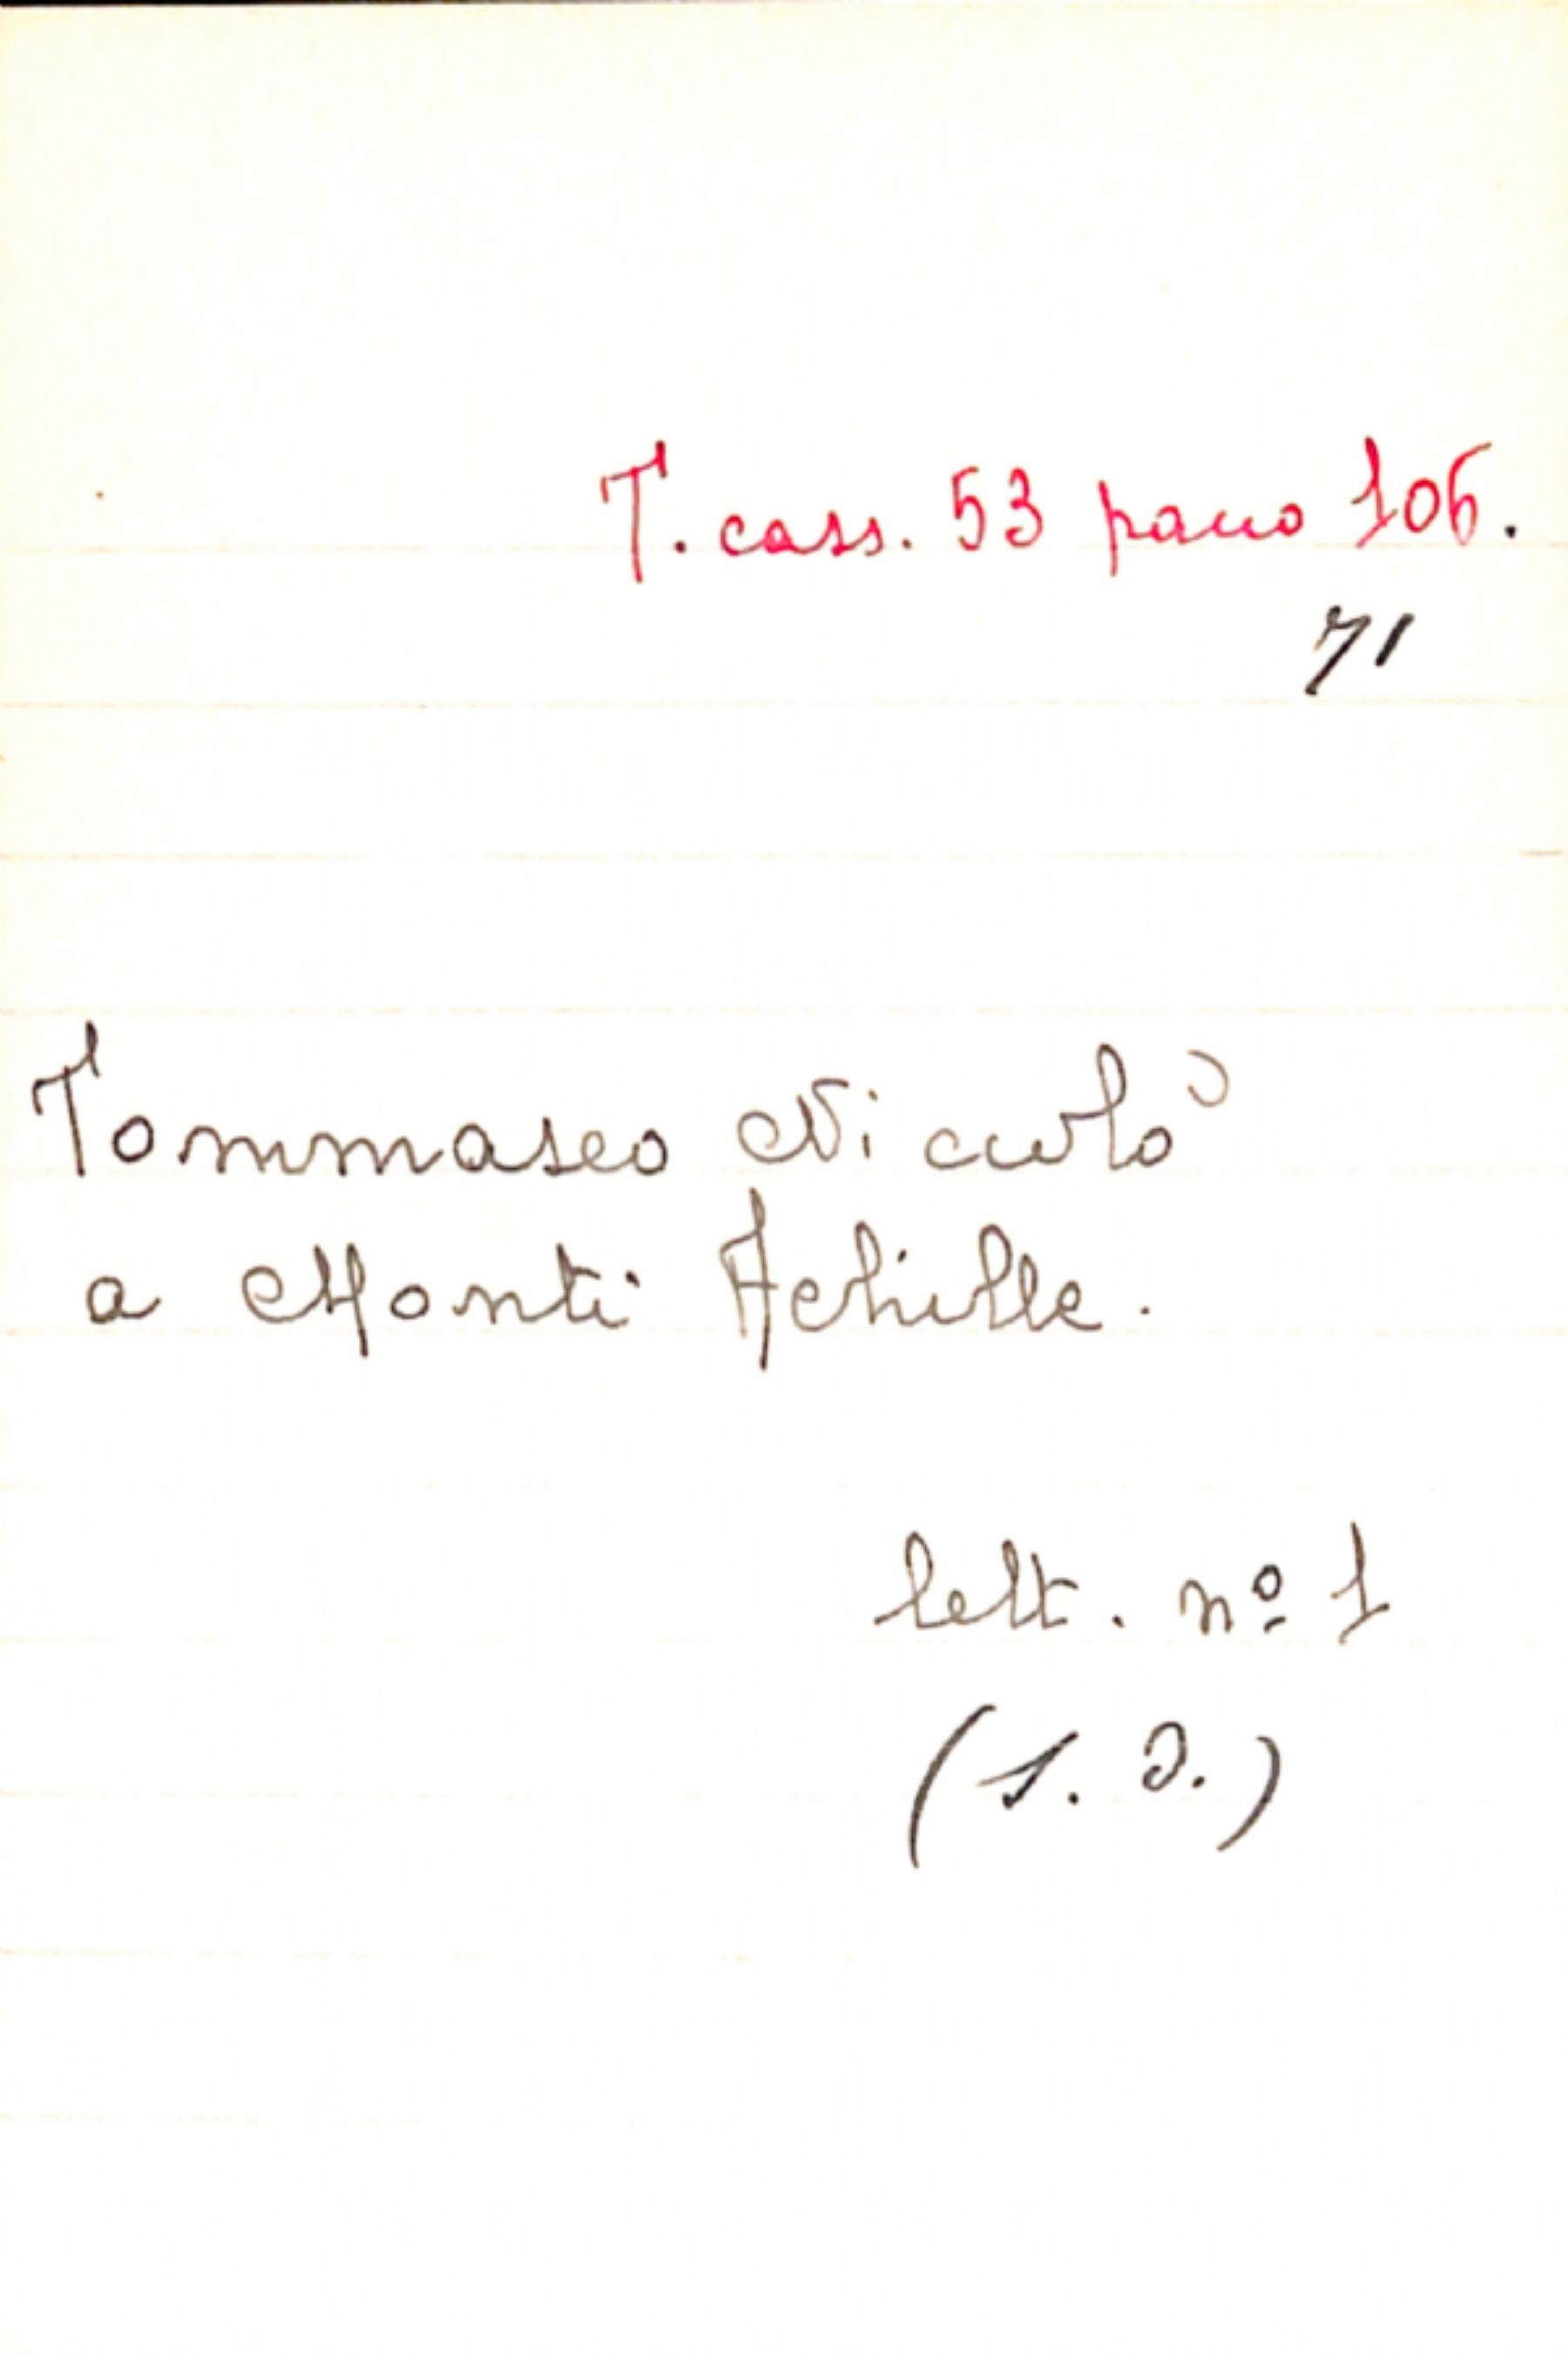 T. cass. 53 pacco 106.
71
Tommaseo Niccolò
a Monti Achille.
lett. nº 1
(s. d.)